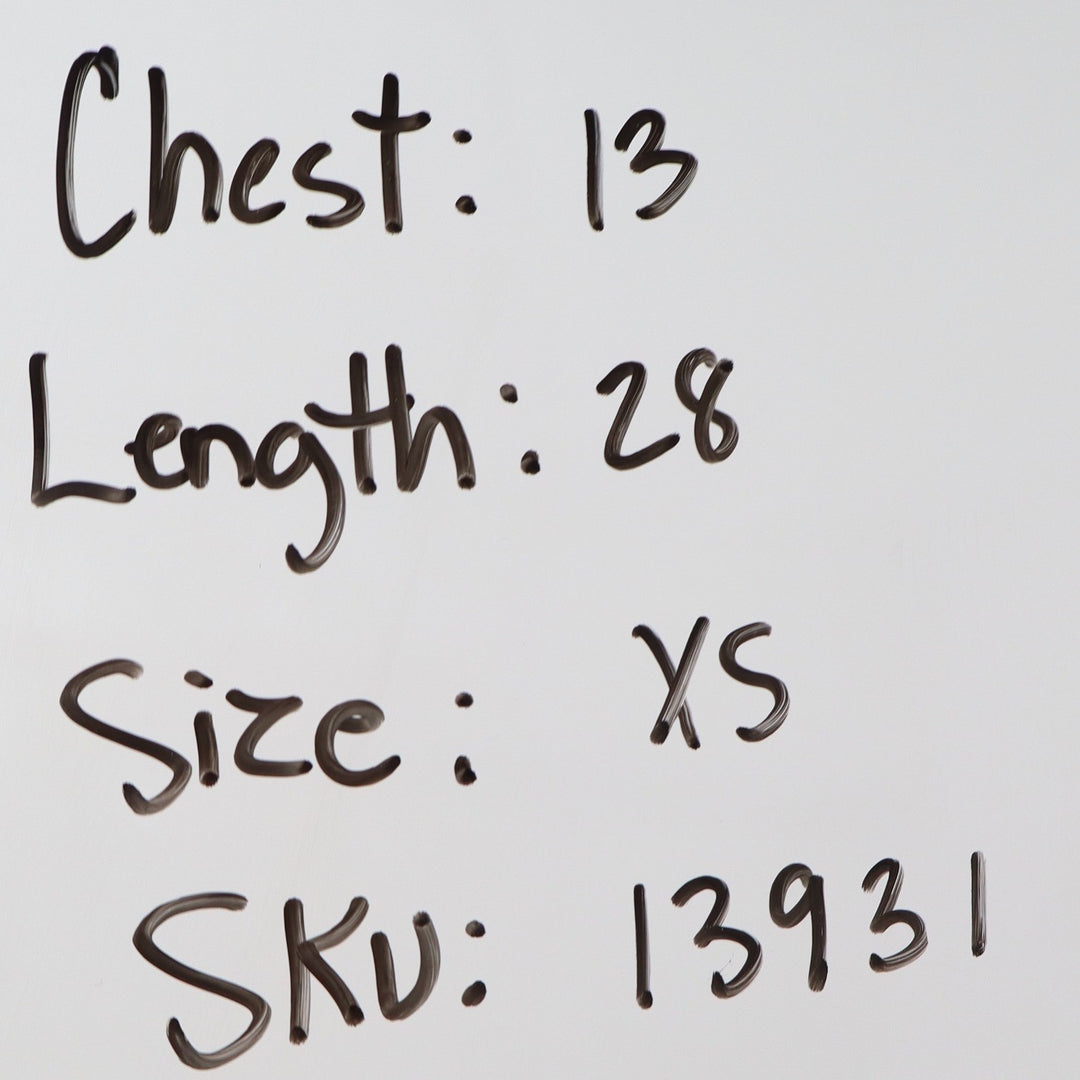 Chest: 13
Length: 28
Size: XS
SKU: 13931